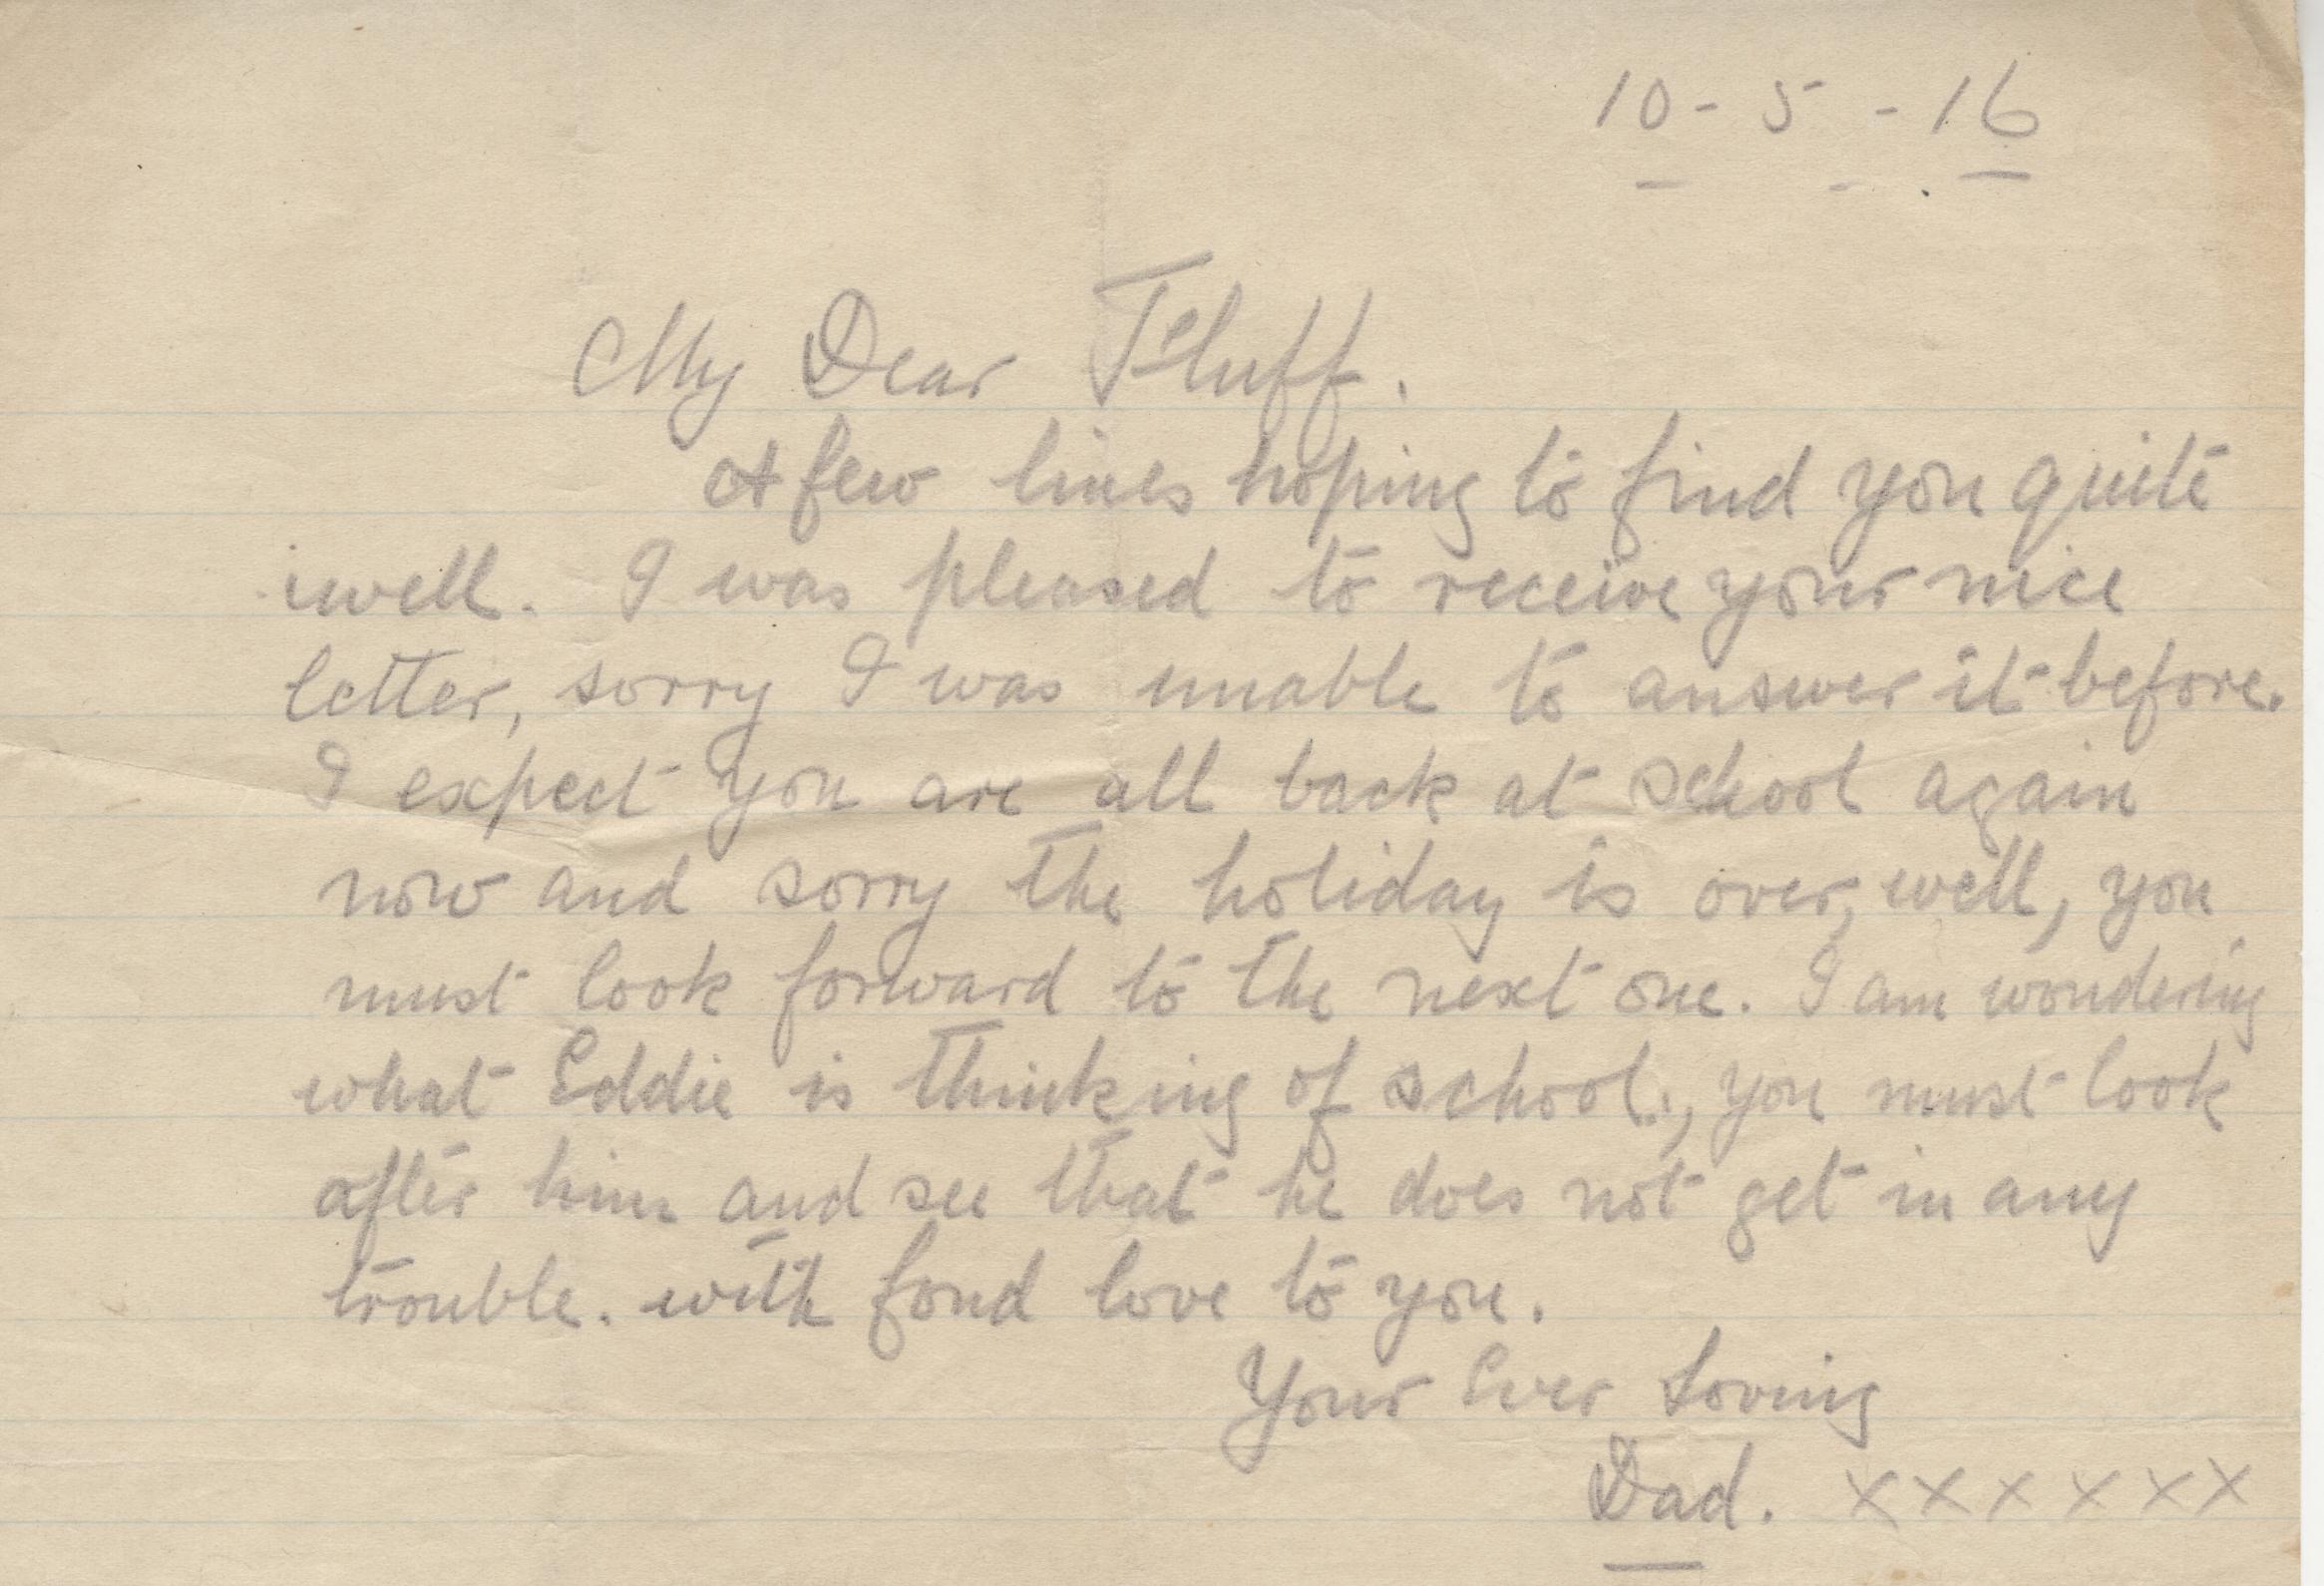 10 - 5 - 16
My Dear Fluff.
A few lines hoping to find you quite
well. I was pleased to receive your nice
letter, sorry I was unable to answer it before.
I expect you are all back at school again
now and sorry the holiday is over, well, you
must look forward to the next one. I am wondering
what Eddie is thinking of school., you must look
after him and see that he does not get in any
trouble. with fond love to you.
Your Ever Loving
Dad. x x x x x x